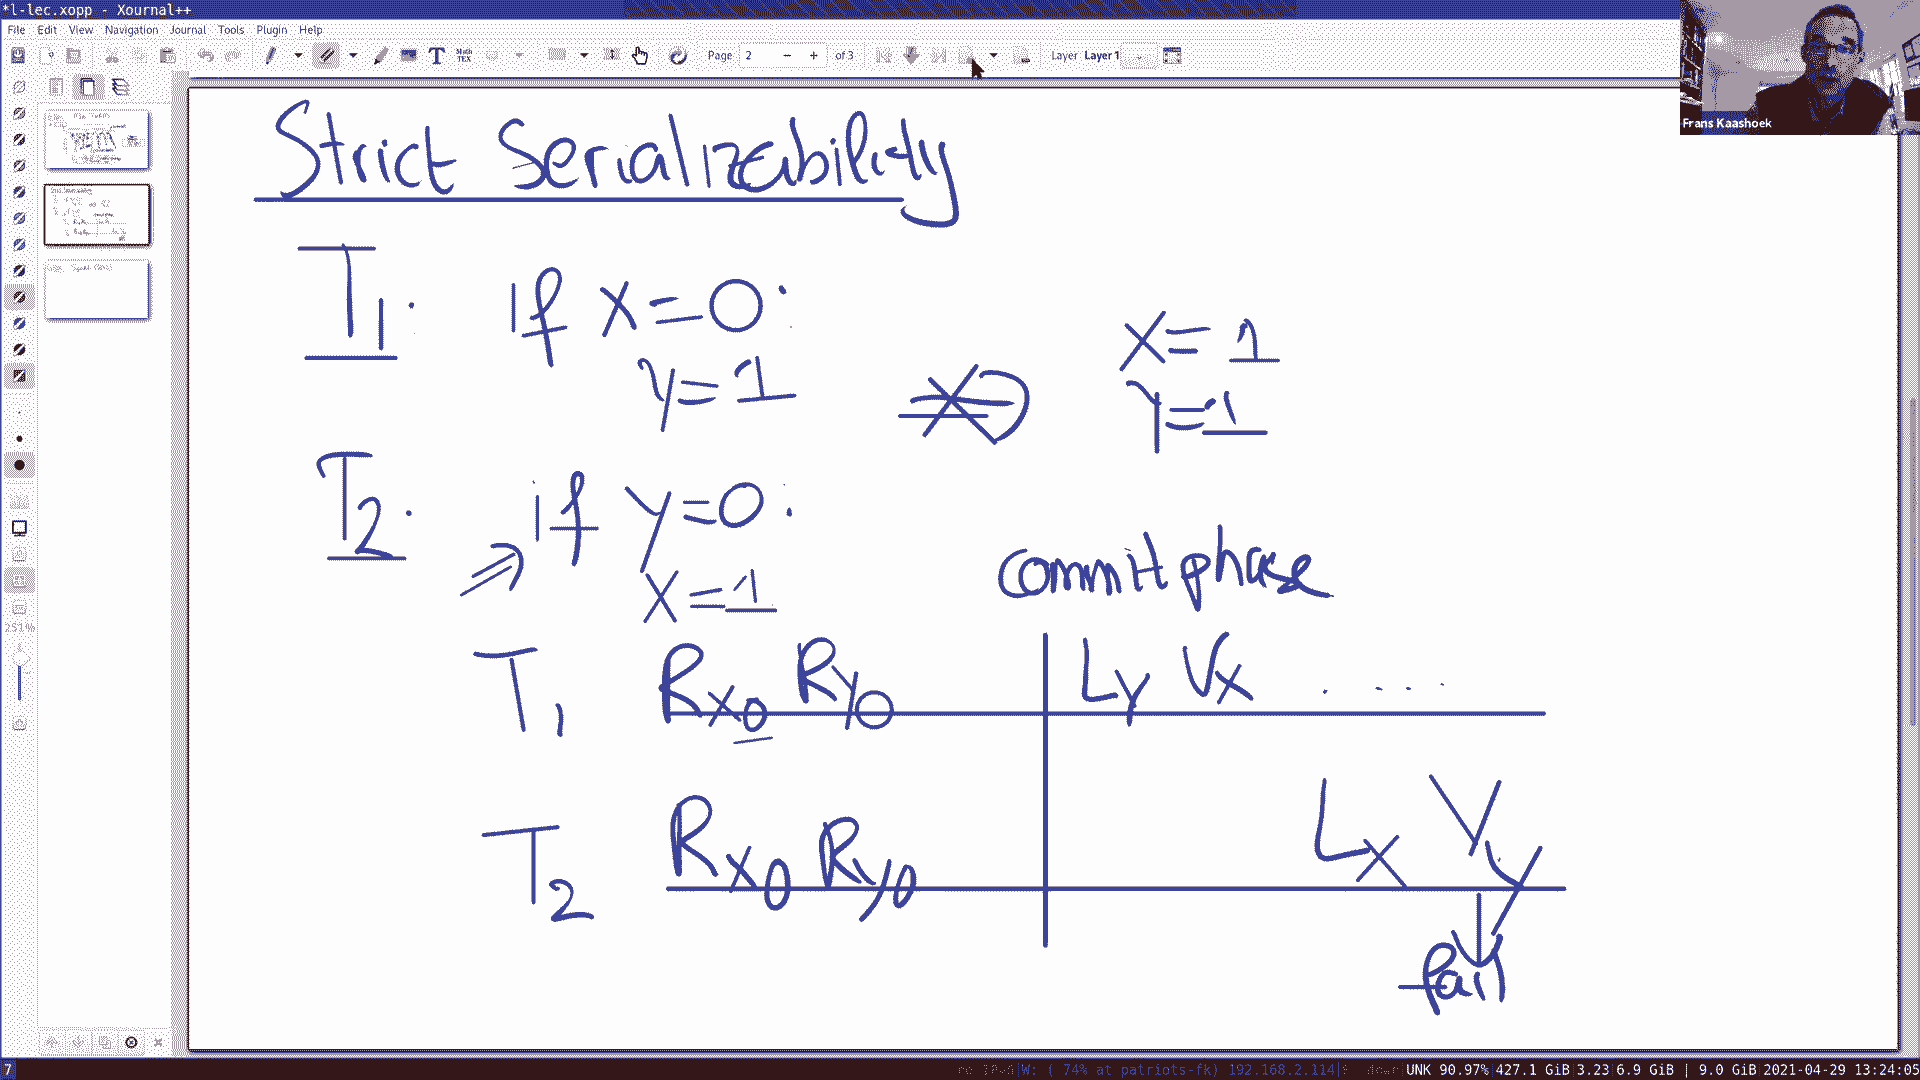 *l-lec.xopp - Xournal++
File Edit View Navigation Journal Tools Plugin Help
Page 2 - + of 3 Layer Layer 1
Frans Kaashoek
Strict Serializability
T1. if x=0:
y=1
x=1
y=1
T2. if y=0:
x=1
commit phase
T1 Rx0 Ry0 Ly Vx .....
T2 Rx0 Ry0 Lx Vy
fail
251%
7 W: ( 74% at patriots-fk) 192.168.2.114 UNK 90.97% 427.1 GiB 3.23 6.9 GiB | 9.0 GiB 2021-04-29 13:24:05